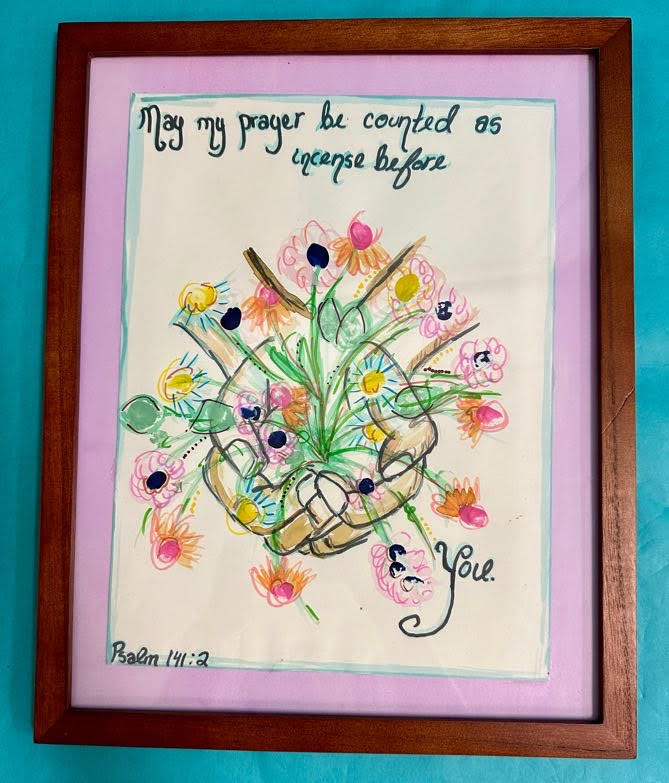 May my prayer be counted as
incense before
You.
Psalm 141:2